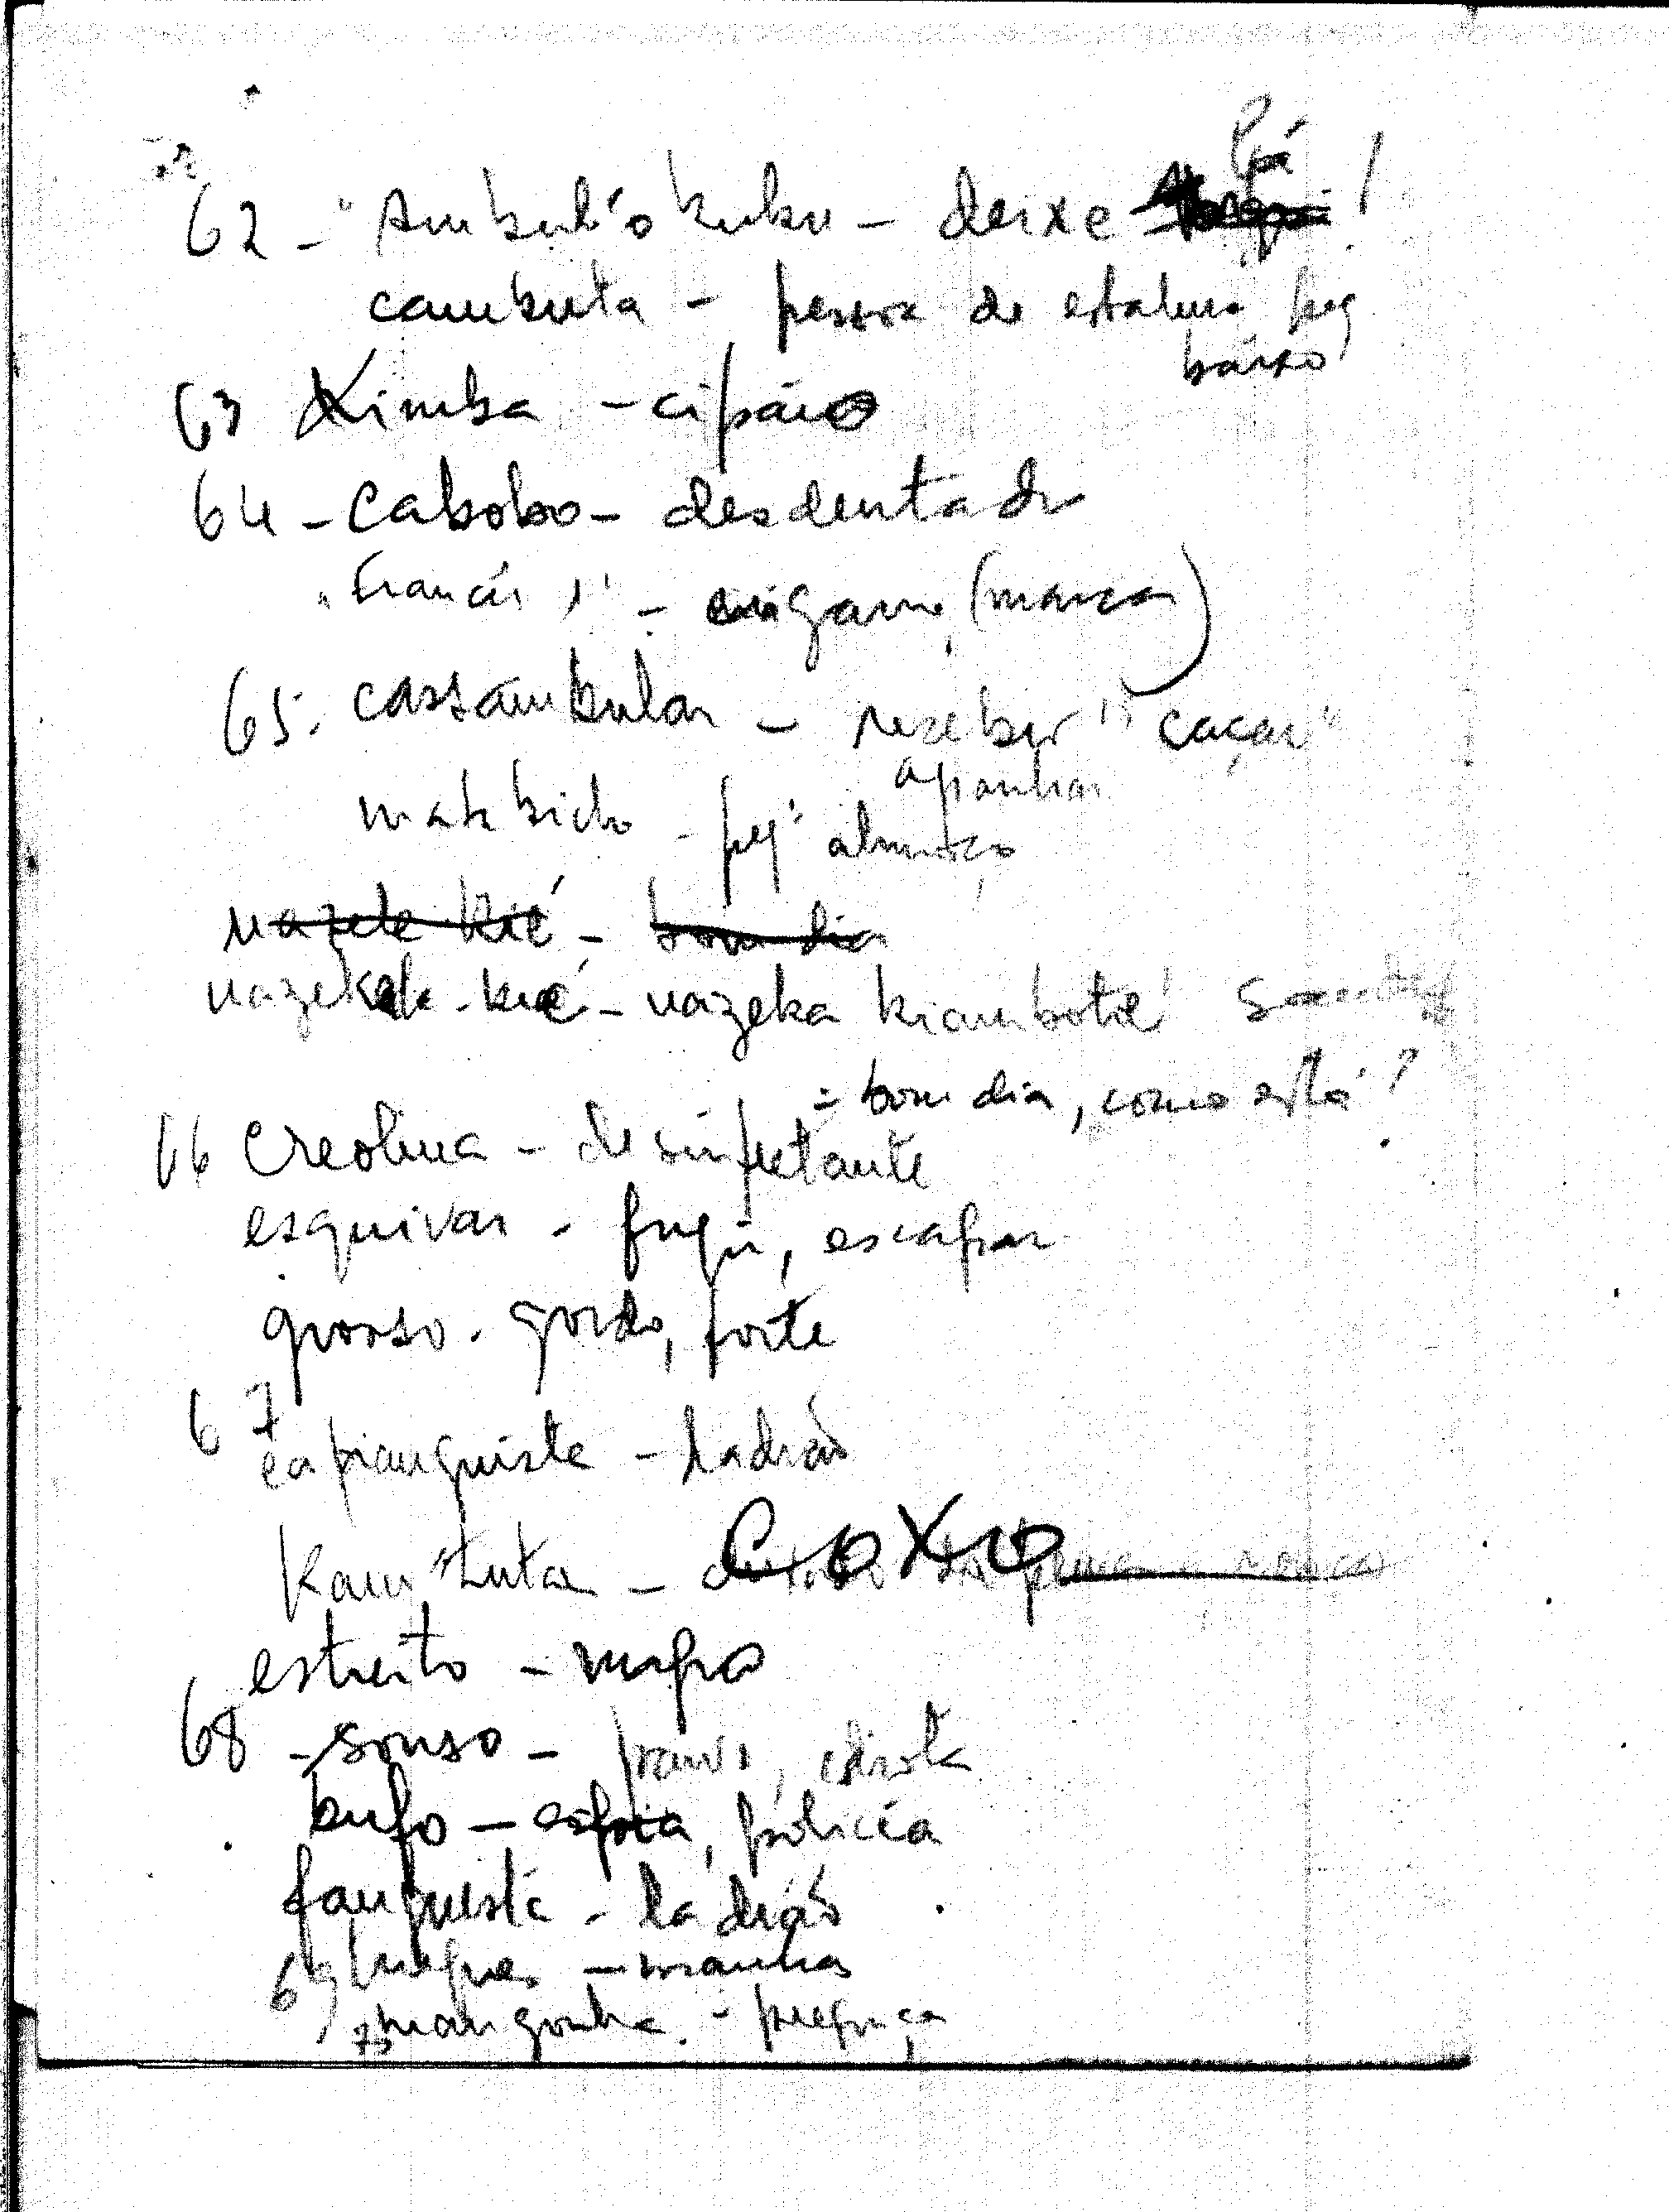 62 - "Ambul'o kuku - deixe lá!
cambuta - pessoa de estatura peq
baixo
63 Kimba - cipaio
64 - Cabobo - desdentado
"Francês 1" - cigarro (marca)
65. cassambular - receber "caçar"
apanhar
mata bicho - peq. almoço
nazele kié - bom dia
nazekele - kié - nazeka kiambote
= bom dia, como está?
66 Creolina - desinfetante
esquivar - fugir, escapar
grosso - gordo, forte
67
capianguista - ladrão
Kam'tuta - Coxo
estreito - magro
68 - sonso - parvo, idiota
bufo - espia, polícia
fanguista - ladrão
69 - manha
70 mangonha - preguiça